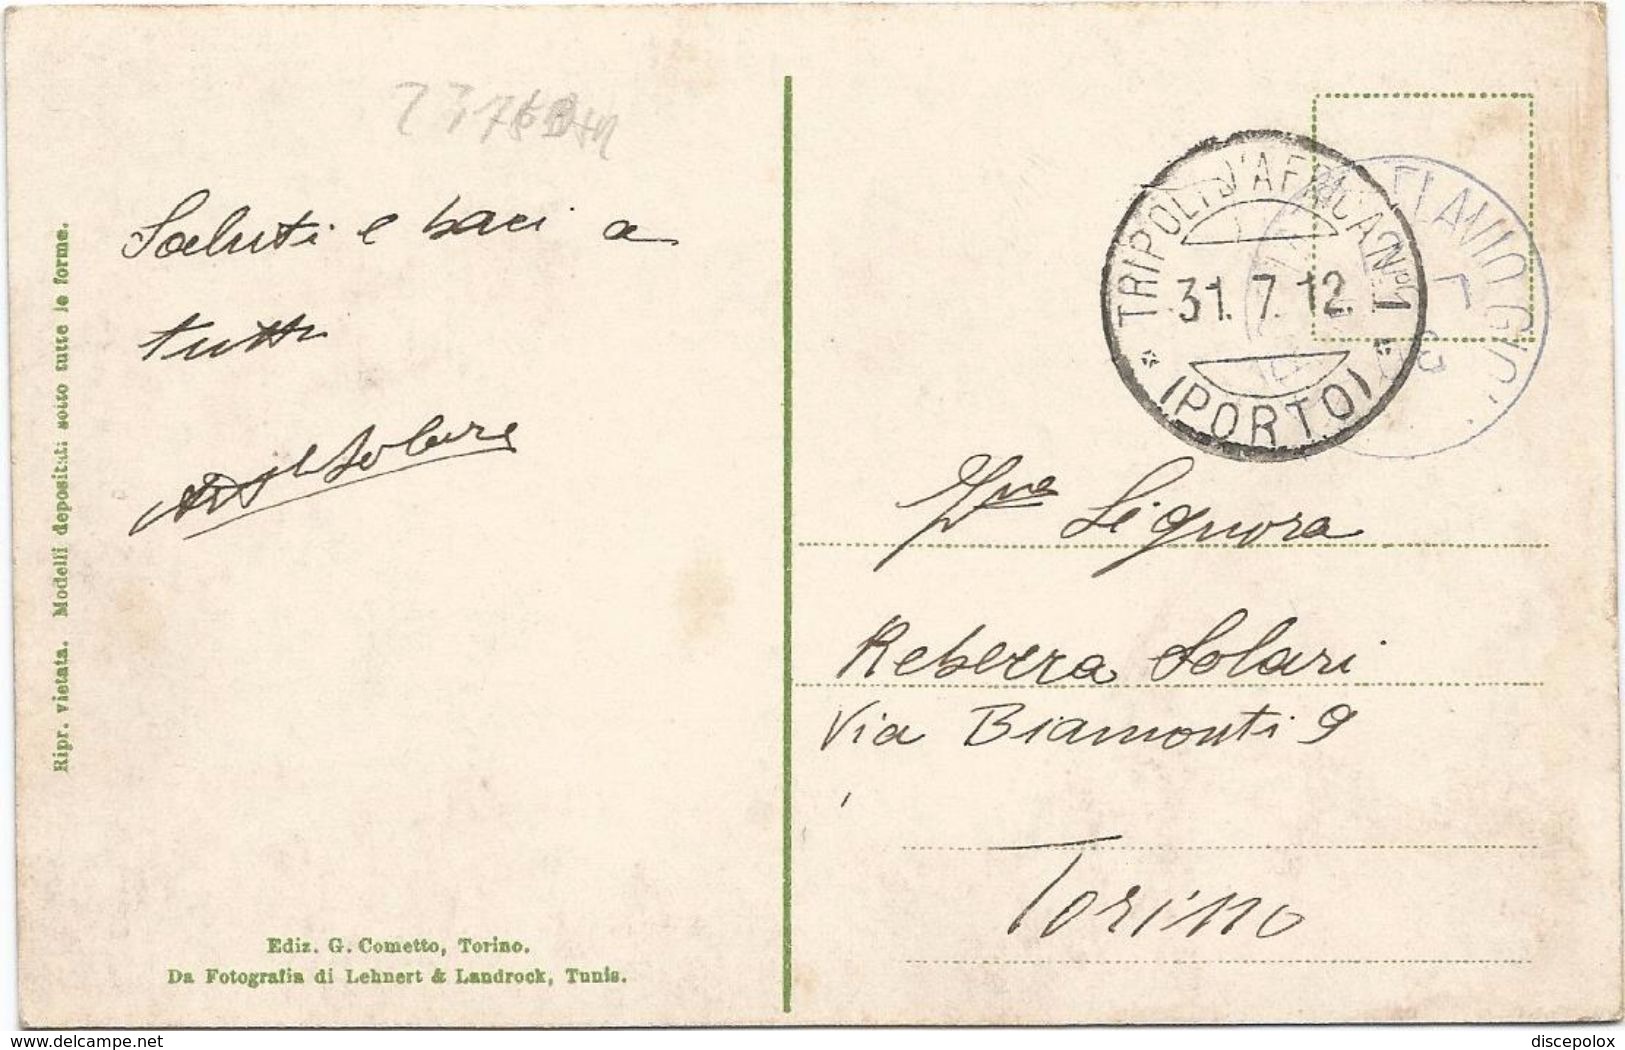 Saluti e baci a
tutti
Solari
Ripr. vietata. Modelli depositati sotto tutte le forme.
Ediz. G. Cometto, Torino.
Da Fotografia di Lehnert & Landrock, Tunis.
TRIPOLI D'AFRICA Nº 1
31. 7. 12.
(PORTO)
FLAVIO GIO
Signora
Rebecca Solari
Via Biamonti 9
Torino
delcampe.net
discepolox